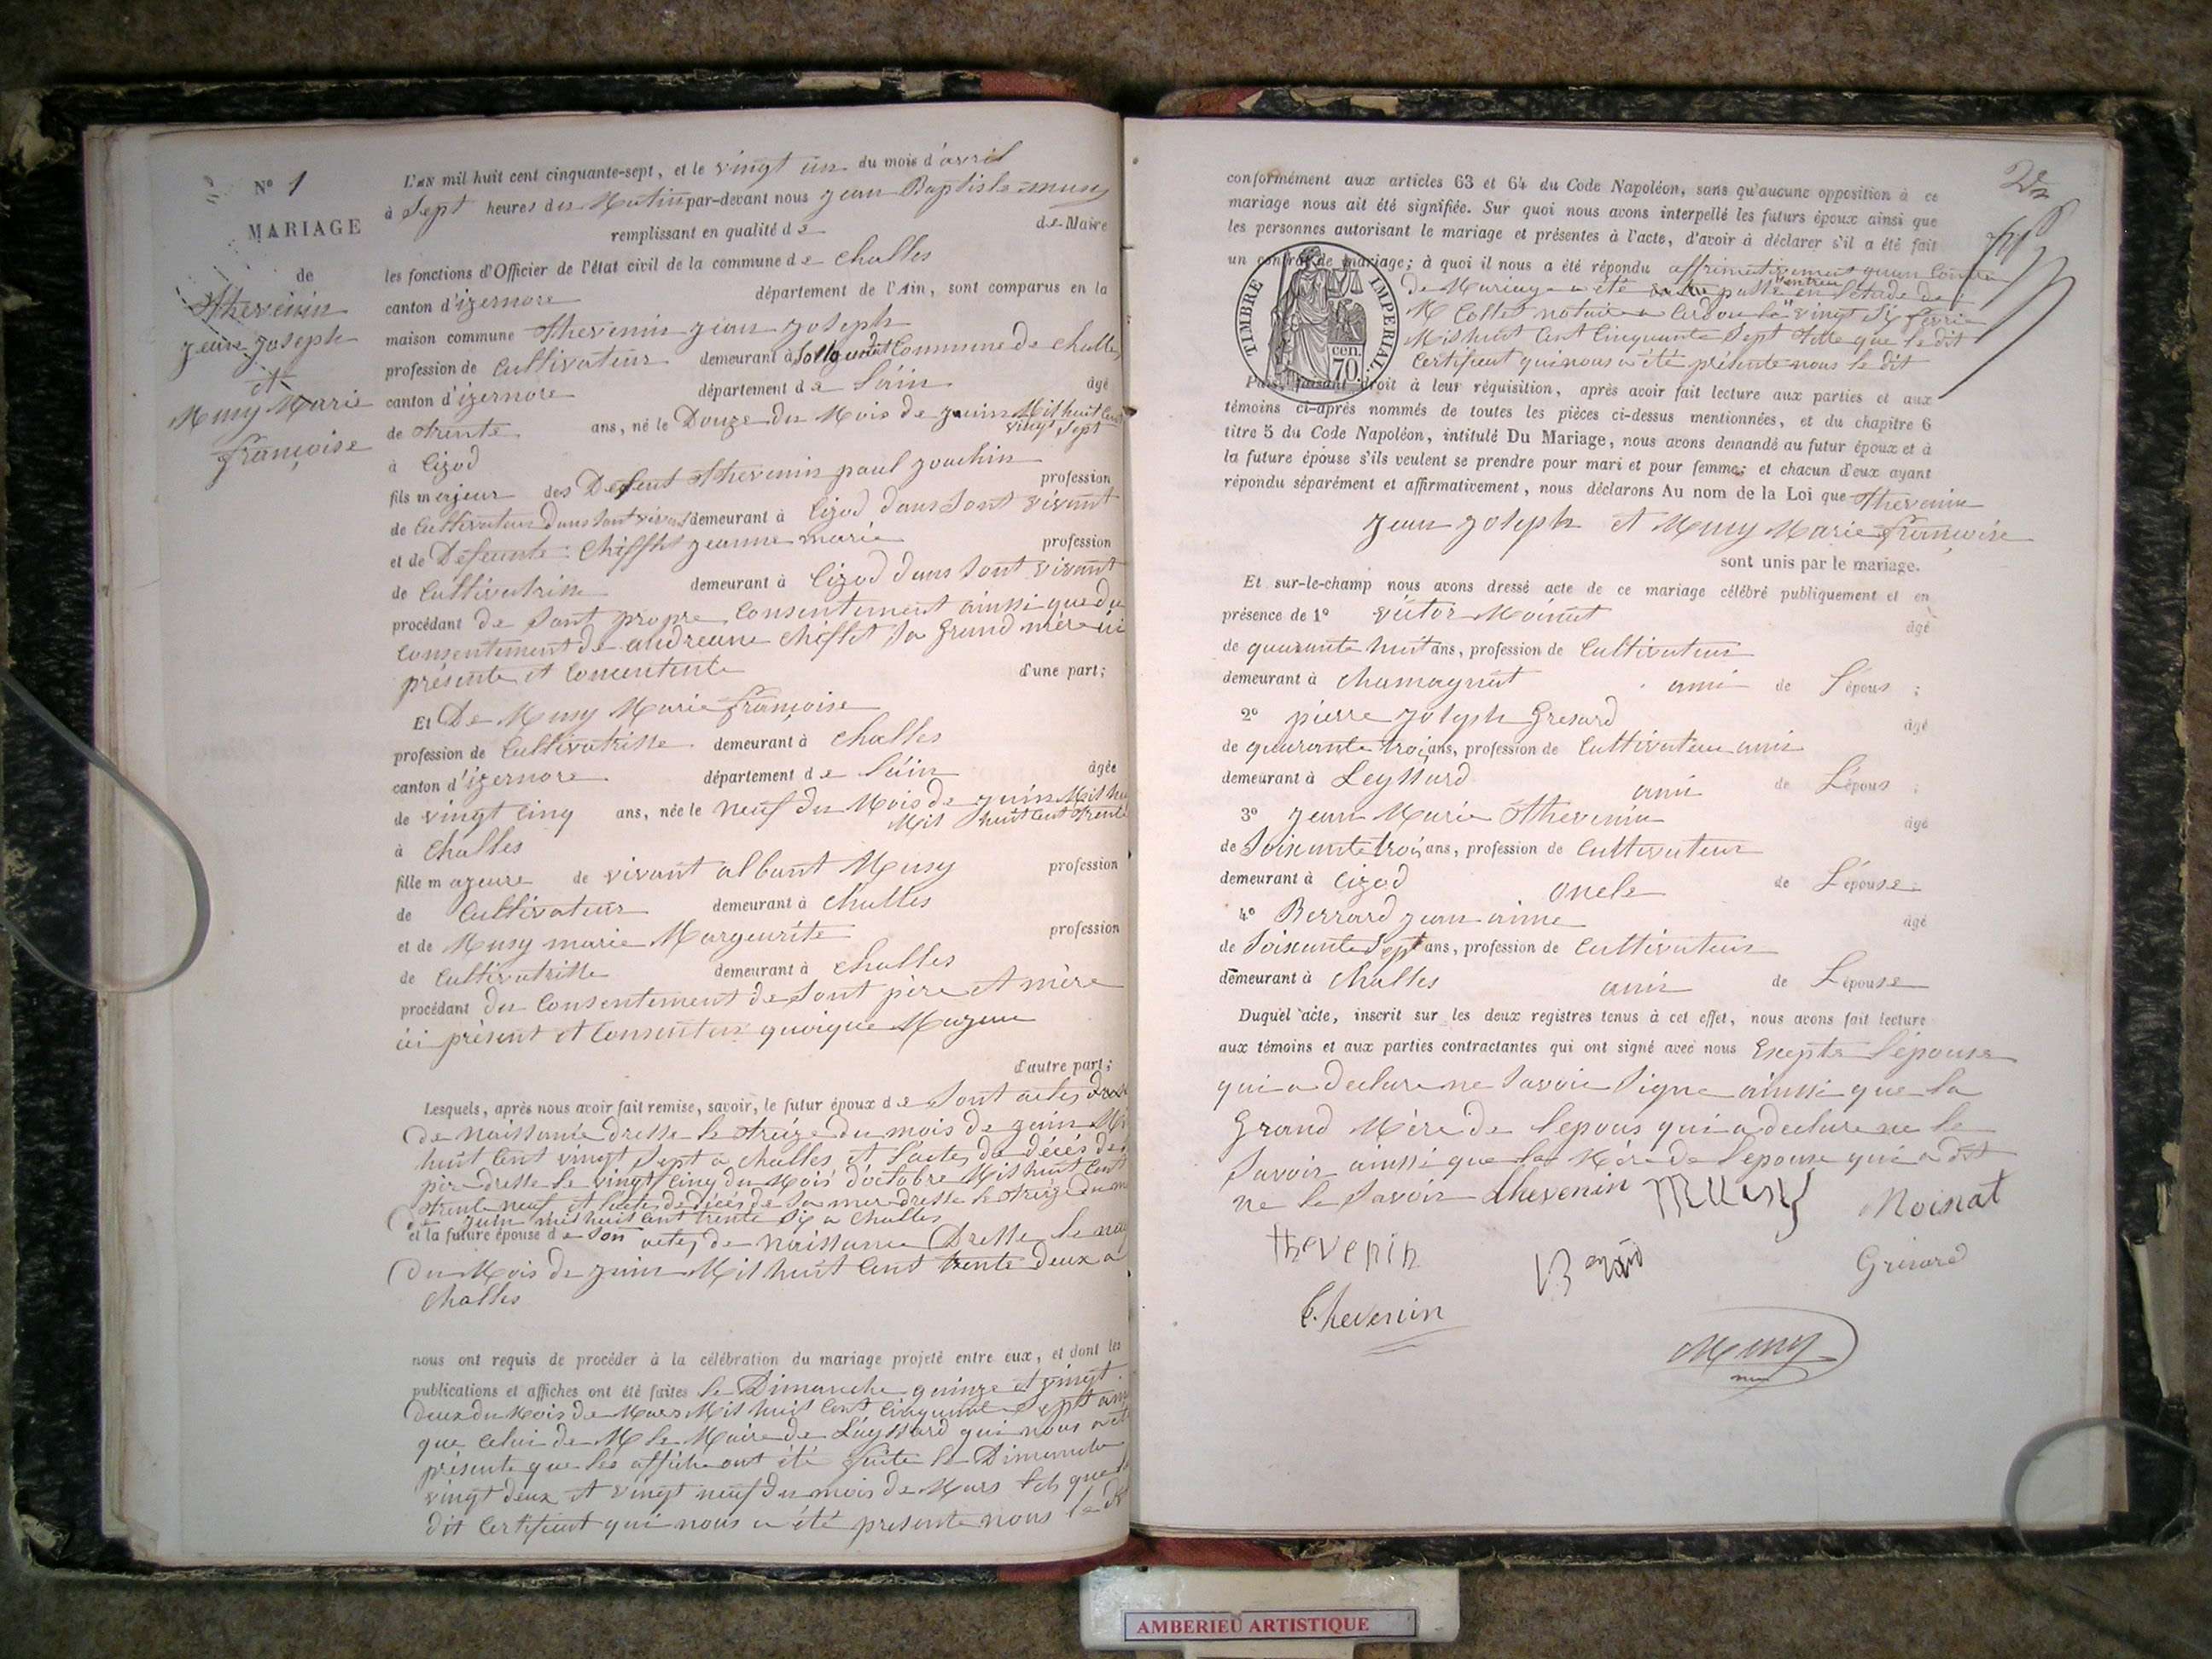 N° 1
MARIAGE
de
Thevenin
jean joseph
et
Musy Marie
françoise
L'AN mil huit cent cinquante-sept, et le vingt un du mois d'avril
à Sept heures du Matin par-devant nous jean Baptiste musy
remplissant en qualité de de Maire
les fonctions d'Officier de l'état civil de la commune de Challes
canton d'izernore département de l'Ain, sont comparus en la
maison commune Thevenin jean joseph
profession de Cultivateur demeurant à Commune de Challes
canton d'izernore département de L'ain âgé
de trente ans, né le Douze du Mois de juin Mil huit Cent
vingt Sept
à Cizod
fils majeur des Defeut Thevenin paul joachin profession
de Cultivateur dans Sont vivant demeurant à Cizod dans Sont vivant
et de Defeunte Chifflet jeanne marie profession
de Cultivatrisse demeurant à Cizod dans Sont vivant
procédant de Sont propre Consentement ainssi que du
Consentement de andreanne Chifflet Sa Grand mère ici
présente et Concentente d'une part;
Et De Musy Marie françoise
profession de Cultivatrisse demeurant à Challes
canton d'izernore département de L'ain âgée
de vingt Cinq ans, née le neuf du Mois de juin Mil hui
Mil huit Cent Trente
à Challes
fille majeure de vivant albant Musy profession
de Cultivateur demeurant à Challes
et de Musy marie Margeurite profession
de Cultivatrisse demeurant à Challes
procédant du Consentement de Sont père et mère
ici présent et Consentent quoique Majeure
d'autre part;
Lesquels, après nous avoir fait remise, savoir, le futur époux de Sont actes
De naissance dresse le treize du mois de juin Mil
huit Cent vingt Sept a Challes et l'actes de décés de
père dresse le vingt Cinq du Mois d'octobre Mil huit Cent
trente neuf et l'actes de décés de Sa mere dresse le treize du
de juin mil huit Cent trente Six a Challes
et la future épouse de Son actes de naissance Dresse le neuf
Du Mois de juin Mil huit Cent trente deux a
Challes
nous ont requis de procéder à la célébration du mariage projeté entre eux, et dont les
publications et affiches ont été faites le Dimanche quinze et vingt
Deux du Mois de Mars Mil huit Cent Cinquante Sept
que Celui de M le Maire de Leyssard qui nous a ete
présente que les affiche ont été faite le Dimanche
vingt deux et vingt neuf du mois de Mars tel que le
dit Certificat qui nous a été présente nous le dit
conformément aux articles 63 et 64 du Code Napoléon, sans qu'aucune opposition à ce
mariage nous ait été signifiée. Sur quoi nous avons interpellé les futurs époux ainsi que
les personnes autorisant le mariage et présentes à l'acte, d'avoir à déclarer s'il a été fait
un contrat de mariage; à quoi il nous a été répondu affirmativement quun Contra
de Mariage a été passé en l'étude de
M Collet notaire a Cerdon le vingt Six fevrier
Mil huit Cent Cinquante Sept Telle que le dit
Certificat qui nous a été présente nous le dit
TIMBRE IMPERIAL
cen.
70.
Puis, faisant droit à leur réquisition, après avoir fait lecture aux parties et aux
témoins ci-après nommés de toutes les pièces ci-dessus mentionnées, et du chapitre 6
titre 5 du Code Napoléon, intitulé Du Mariage, nous avons demandé au futur époux et à
la future épouse s'ils veulent se prendre pour mari et pour femme; et chacun d'eux ayant
répondu séparément et affirmativement, nous déclarons Au nom de la Loi que Thevenin
jean joseph et Musy Marie françoise
sont unis par le mariage.
Et sur-le-champ nous avons dressé acte de ce mariage célébré publiquement et en
présence de 1° victor Moinat âgé
de quarante huit ans, profession de Cultivateur
demeurant à Chamagnat ami de L'épous ;
2° pierre joseph Gresard âgé
de quarante trois ans, profession de Cultivateur ami
demeurant à Leyssard ami de L'épous ;
3° jean Marie Thevenin âgé
de Soixante trois ans, profession de Cultivateur
demeurant à Cizod oncle de L'épouse
4° Berrard jean aime âgé
de Soixante Sept ans, profession de Cultivateur
demeurant à Challes ami de L'épouse
Duquel acte, inscrit sur les deux registres tenus à cet effet, nous avons fait lecture
aux témoins et aux parties contractantes qui ont signé avec nous Exepte l'épouse
qui a declare ne Savoir Signe ainssi que la
Grand Mère de lepous qui a declare ne le
Savoir ainssi que la Mère de lepouse qui a dit
ne le Savoir Thevenin Musy Moinat
thevenin
Grisard
Thevenin
Musy
AMBERIEU ARTISTIQUE